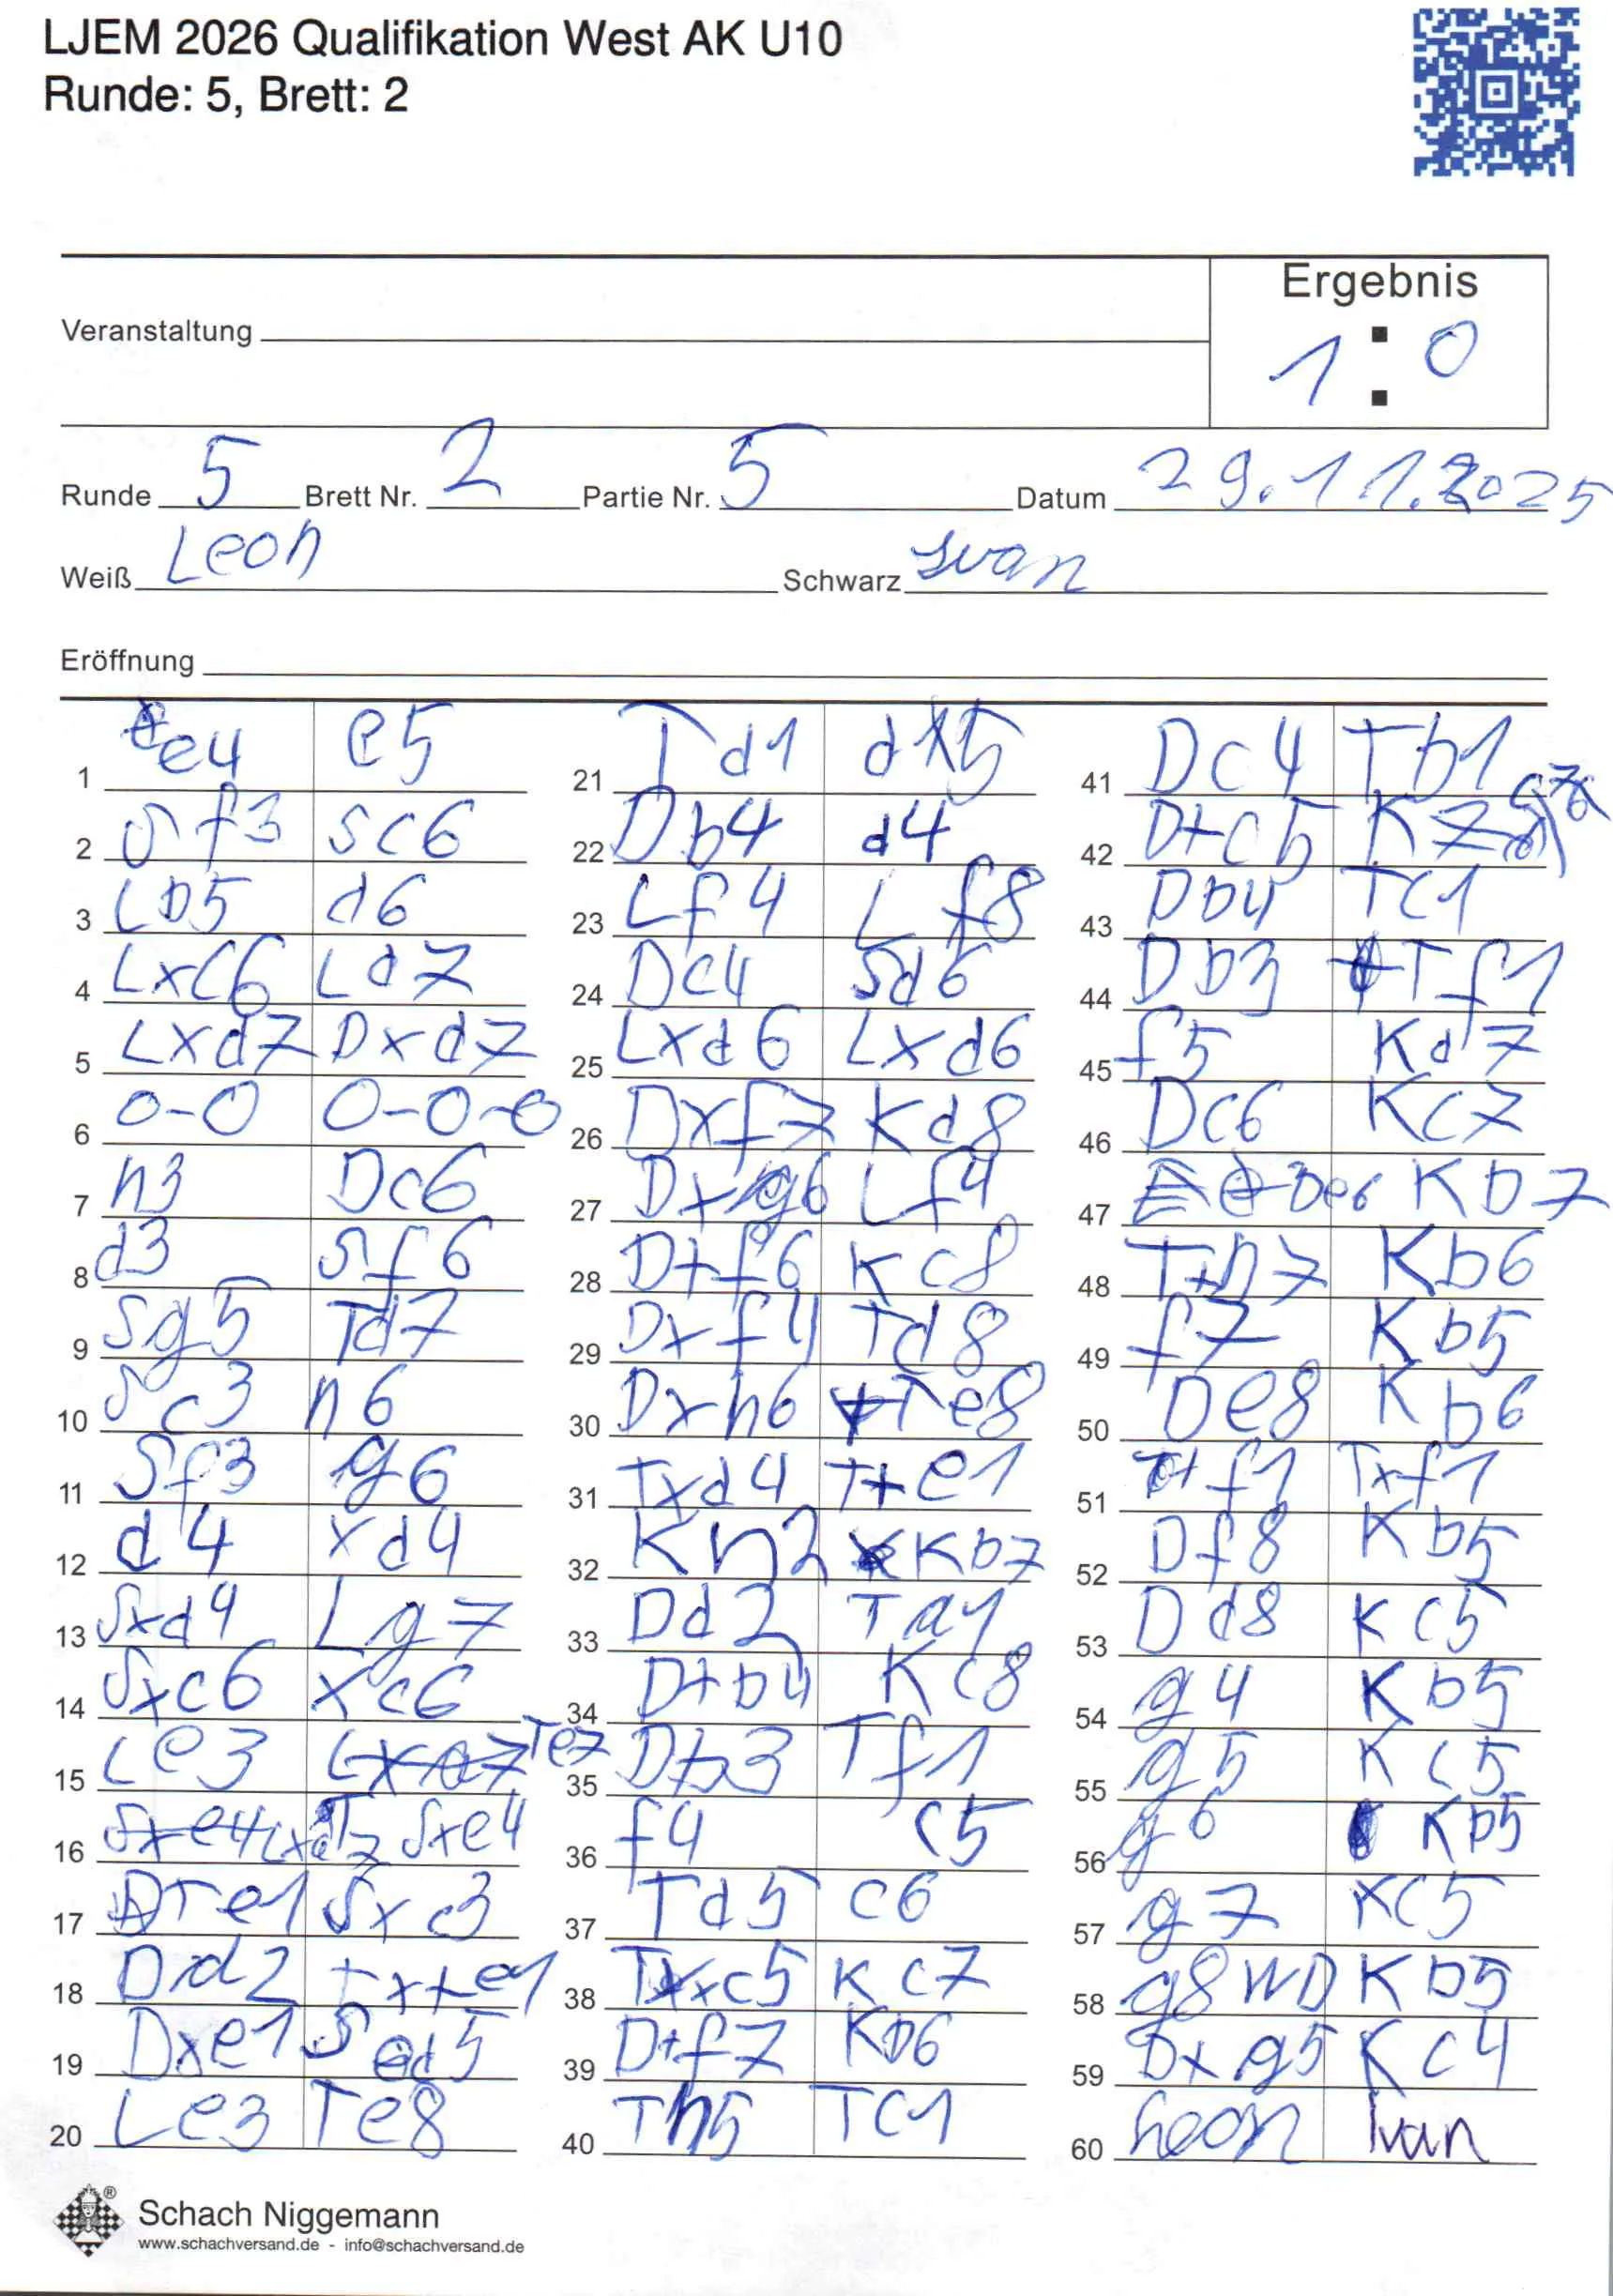 LJEM 2026 Qualifikation West AK U10
Runde: 5, Brett: 2
Ergebnis
Veranstaltung
1 : 0
Runde 5 Brett Nr. 2 Partie Nr. 5 Datum 29.11.2025
Weiß Leon Schwarz Ivan
Eröffnung
1 e4 e5
2 Sf3 Sc6
3 Lb5 d6
4 Lxc6 Ld7
5 Lxd7 Dxd7
6 0-0 0-0-0
7 h3 Dc6
8 d3 Sf6
9 Sg5 Td7
10 Sc3 h6
11 Sf3 g6
12 d4 xd4
13 Sxd4 Lg7
14 Sxc6 xc6
15 Le3 Te7
16 Lxa7 Sxe4
17 Te1 Sxc3
18 Dd2 Txte1
19 Dxe1 Sd5
20 Le3 Te8
21 Td1 dx5
22 Db4 d4
23 Lf4 Lf8
24 Dc4 Sd6
25 Lxd6 Lxd6
26 Dxf7 Kd8
27 Dxg6 Lf4
28 D+f6 Kc8
29 Dxf4 Td8
30 Dxh6 Te8
31 Txd4 T+e1
32 Kh2 Kb7
33 Dd2 Ta1
34 D+b4 Kc8
35 Db3 Tf1
36 f4 c5
37 Td5 c6
38 Txc5 Kc7
39 D+f7 Kb6
40 Th5 Tc1
41 Dc4 Tb1
42 D+c5 K
43 Db4 Tc1
44 Db3 Tf1
45 f5 Kd7
46 Dc6 Kc7
47 De6 Kb7
48 T+h7 Kb6
49 f7 Kb5
50 De8 Kb6
51 f1 Txf1
52 Df8 Kb5
53 Dd8 Kc5
54 g4 Kb5
55 g5 Kc5
56 g6 Kb5
57 g7 Kc5
58 g8WD Kb5
59 Dxg5 Kc4
60 Leon Ivan
Schach Niggemann
www.schachversand.de - info@schachversand.de